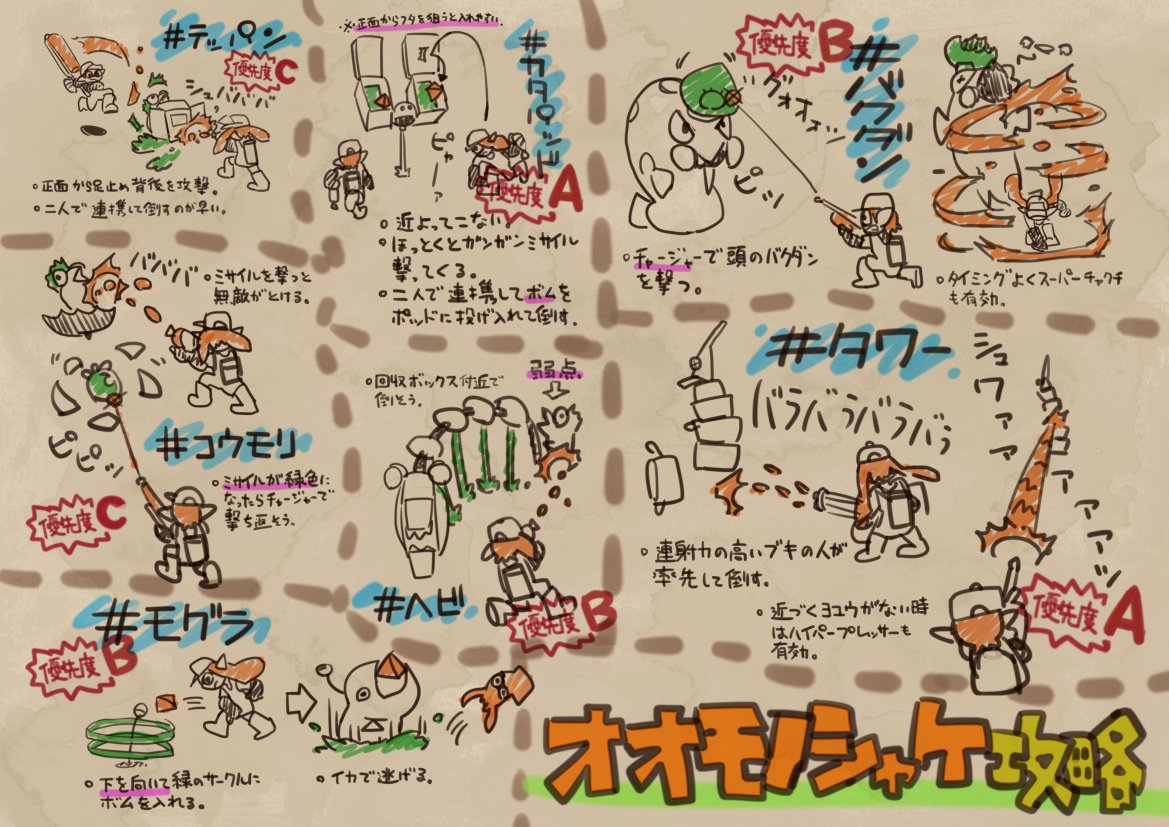 #テッパン
優先度C
シュッ
バババ
○正面から足止め背後を攻撃。
○二人で連携して倒すのが早い。
※正面からフタを狙うと入れやすい。
#カタパッド
優先度A
ピャーッ
○近よってこない。
○ほっとくとガンガンミサイル
撃ってくる。
○二人で連携してボムを
ポッドに投げ入れて倒す。
優先度B
#バクダン
グオオオ
ピッ
○チャージャーで頭のバクダン
を撃つ。
○タイミングよくスーパーチャクチ
も有効。
バババ
○ミサイルを撃つと
無敵がとける。
ピピッ
#コウモリ
○ミサイルが緑色に
なったらチャージャーで
撃ち返そう。
優先度C
○回収ボックス付近で
倒そう。
弱点
#ヘビ
優先度B
#タワー
バラバラバラバラ
シュワァァァァァァァッ
○連射力の高いブキの人が
率先して倒す。
○近づくヨユウがない時
はハイパープレッサーも
有効。
優先度A
#モグラ
優先度B
○下を向いて緑のサークルに
ボムを入れる。
○イカで逃げる。
オオモノシャケ攻略